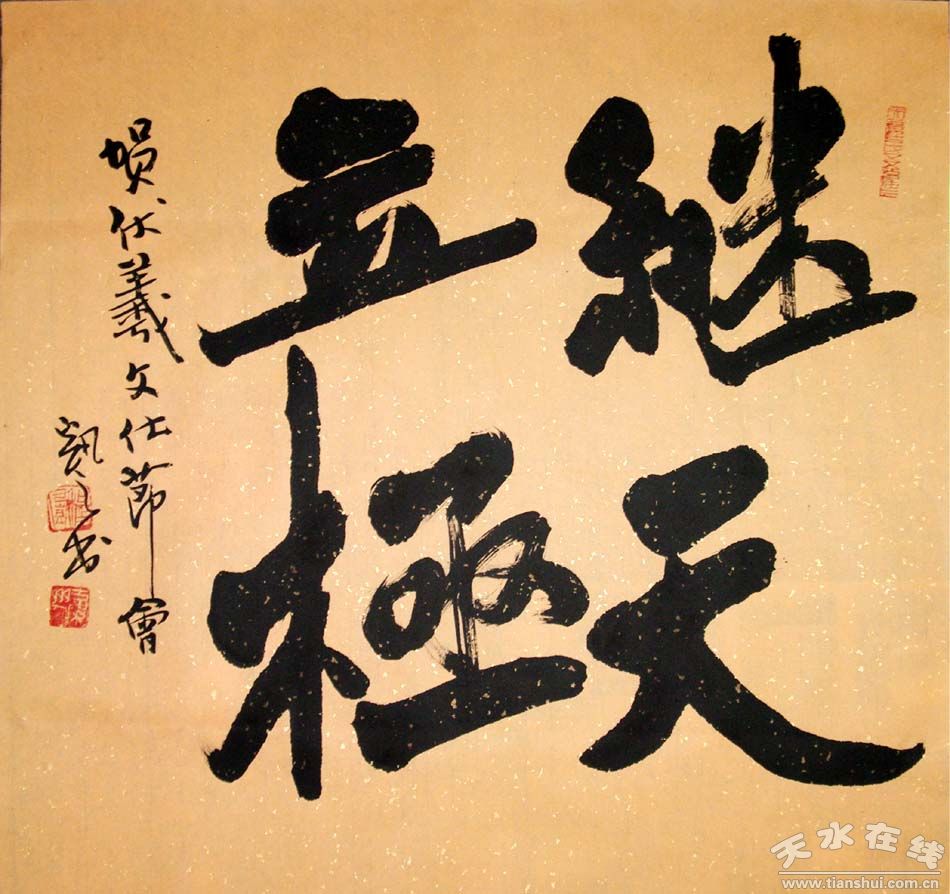 继天
立極
伏羲文化節會
书
天水在线
www.tianshui.com.cn